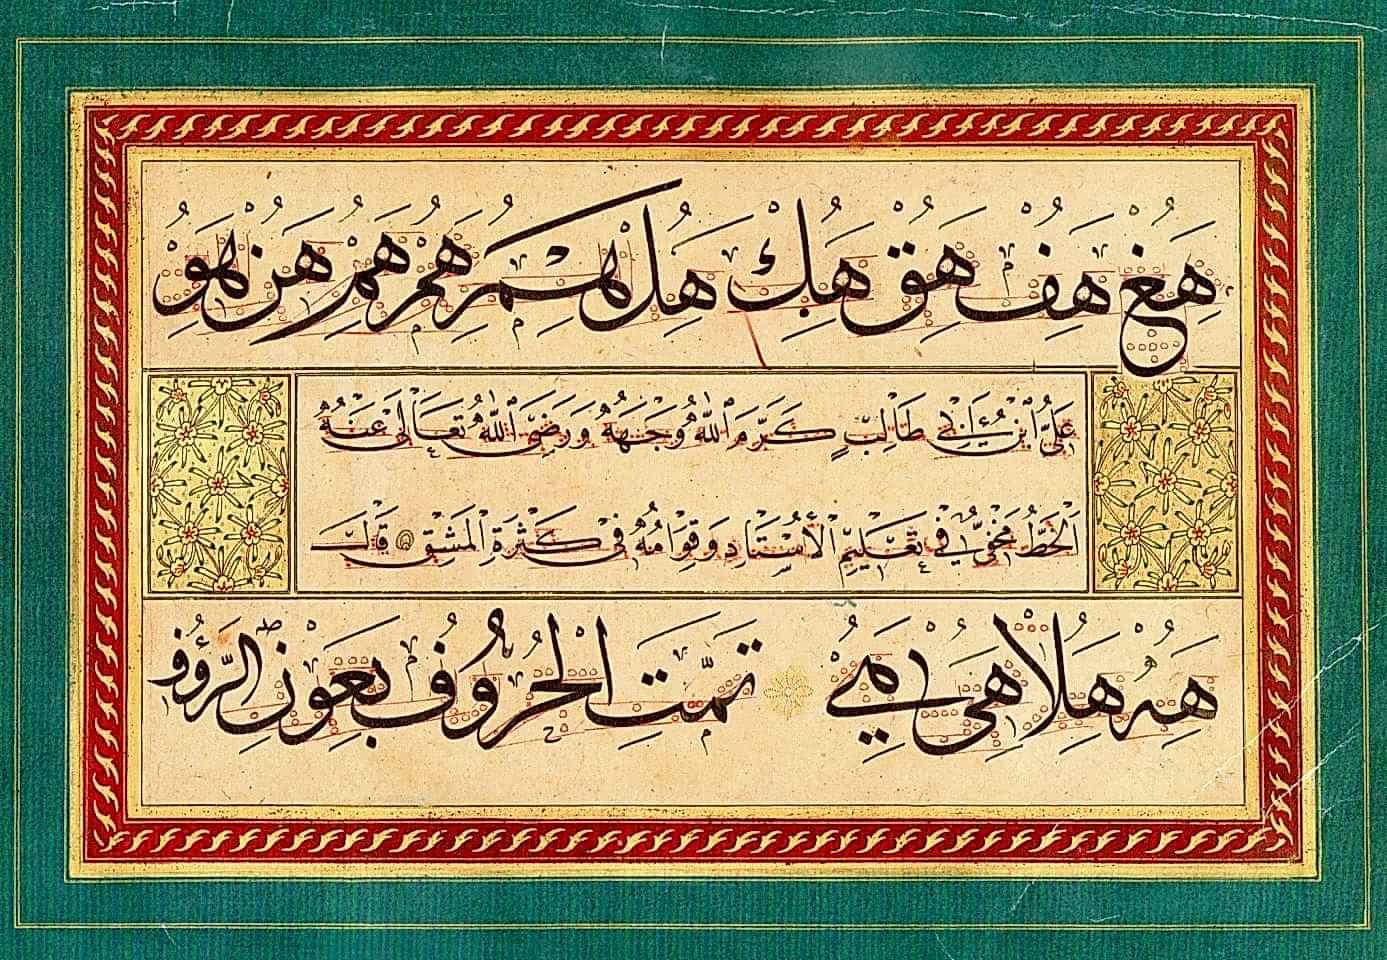 هغ هف هق هك هل لهم هم هم هن لهو
علي ابن أبي طالب كرم الله وجهه ورضي الله تعالى عنه
الخط مخفي في تعليم الأستاد وقوامه في كثرة المشق قال
هه هلا هى تمت الحروف بعون الرؤوف